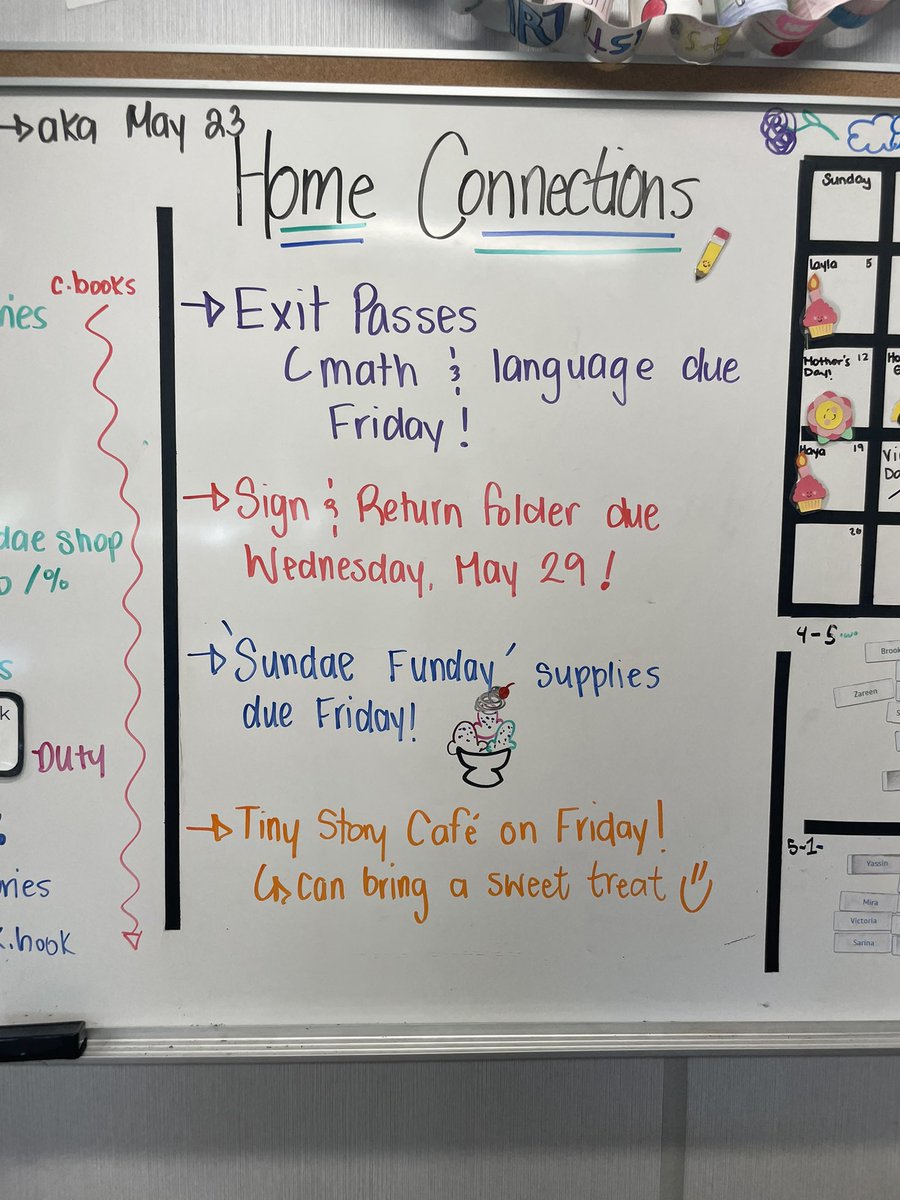 aka May 23
Home Connections
Exit Passes
math & language due
Friday!
Sign & Return folder due
Wednesday, May 29!
'Sundae Funday' supplies
due Friday!
Tiny Story Café on Friday!
can bring a sweet treat
c.books
ries
dae shop
/%
s
k
Duty
ries
hook
Sunday
Layla 5
Mother's 12
Day!
Haya 19
26
4-5
Zareen
5-1-
Yassin
Mira
Victoria
Sarina